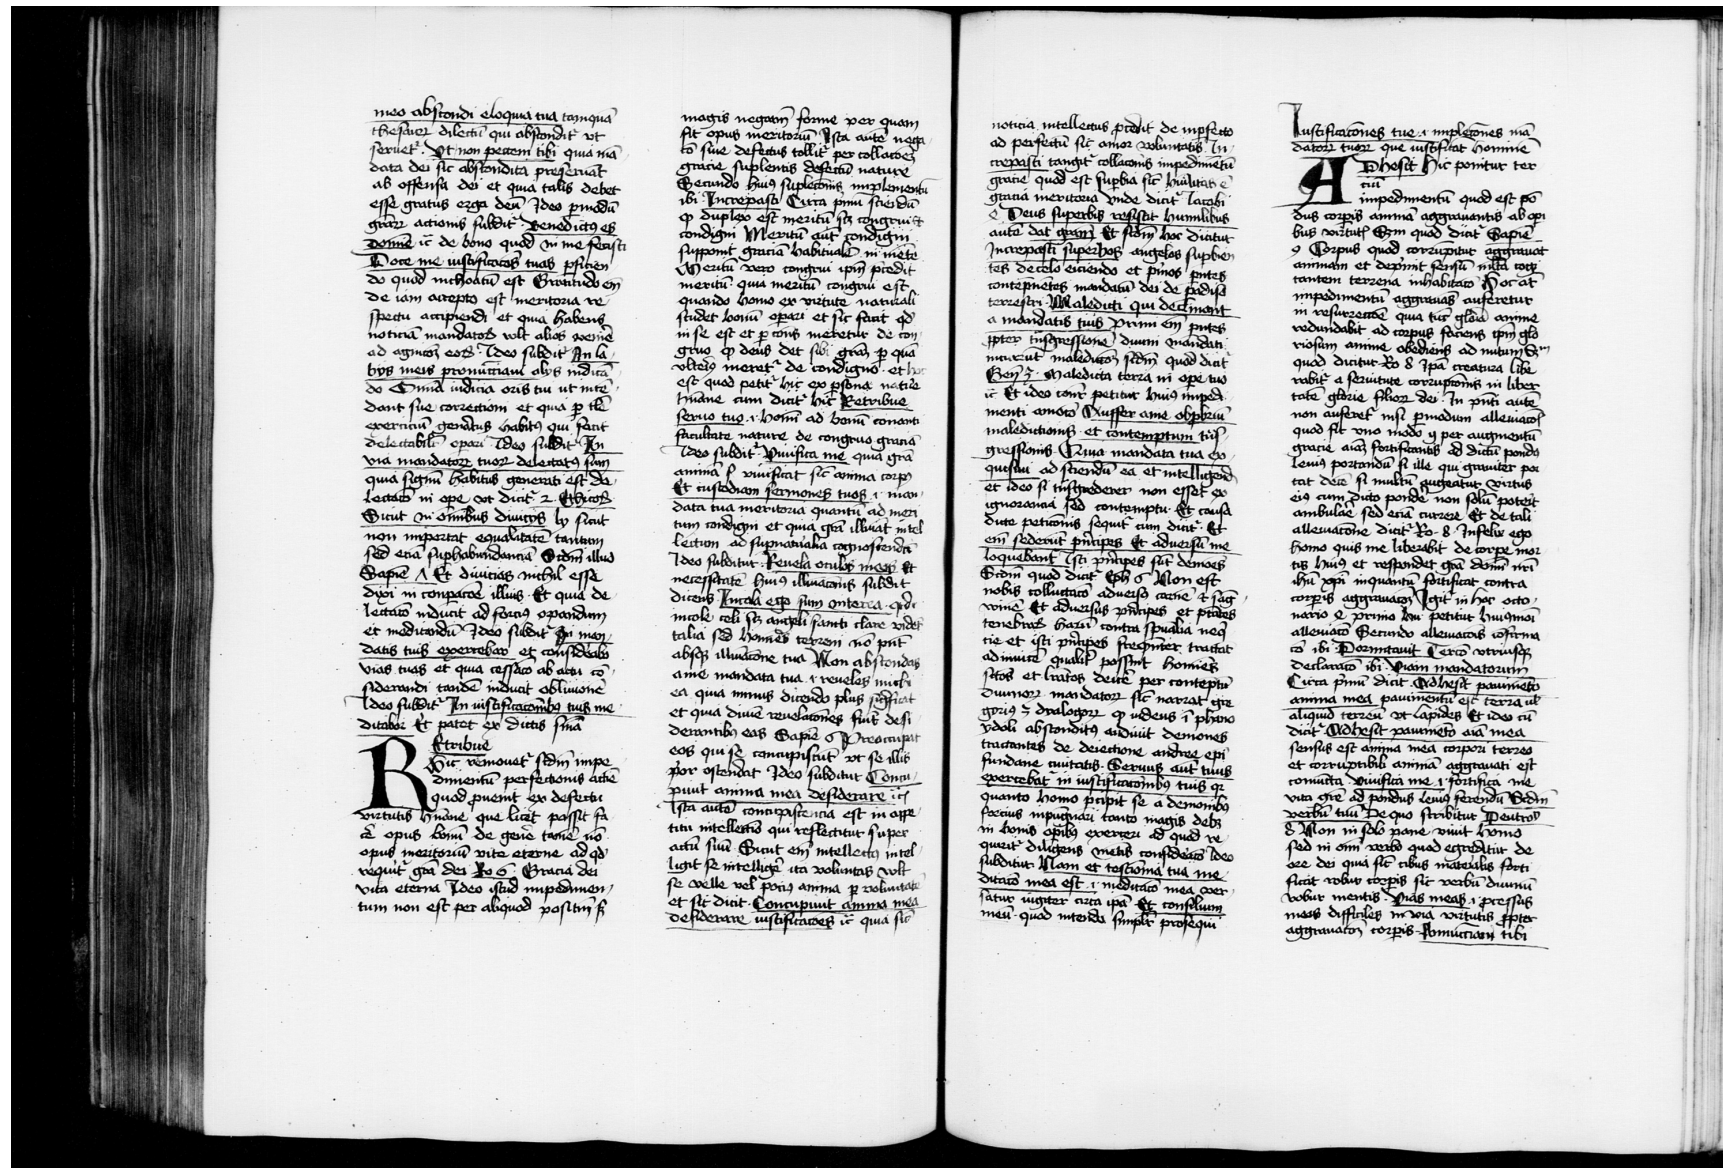 meo abscondi eloquia tua tamquā
thesaur dilectū qui abscondit̄ ut
seruet᷑. Ut non peccem tibi quia mā
data dei sic abscondita preseruāt
ab offensa dei et quia talis debet
esse gratus erga deū Ideo p modū
gr̄arr actionis subdit᷑ Benedictus es
domīe ic̄ de bono quod in me fecisti
Doce me iustificacōes tuas p̄ficien
do quod inchoatū est Gratitudo em̄
de iam accepto est meritoria re
spectu accipiendi et quia habens
noticiā mandatorꝝ vlt alios
ad eorꝝ Ideo subdit᷑ In la
bijs meis pronūciaui alijs indicā
do Omīa iudicia oris tui ut intē
dant sue correctioni et quia p
exercitiū genātus habitꝰ qui facit
delectabilit̄ operari Ideo subdit᷑ In
via mandatorꝝ tuorꝝ delectatꝰ sum
quia signū habitus generati est de
lectacō in ope ut dicit᷑ 2 Ethicorꝝ
Sicut in omībus diuicijs ly sicut
non importat equalitatē tantum
sed eciā suphabundanciā Scdm̄ illud
Sapiē Λ Et diuicias nichil esse
dixi in compacōe illius Et quia de
lectacō inducit ad forcius opandum
et meditandū Ideo subdit᷑ In man
datis tuis exercebor et considerabo
vias tuas et quia cessacō ab actu cō
siderandi tandē inducit obliuionē
Ideo subdit᷑ In iustificacōibus tuis me
ditabor Et patet ex dictis sniā
REtribue
Hic remouet scdm̄ impe
dimentū perfectionis
quod puenit ex defectu
virtutis hūane que licet possit fa
cē opus bonū de genē tamē nō
opus meritoriū vite eterne ad qd̄
requirit᷑ grā dei Ro 6 Gracia dei
vita eterna Ideo istud impedimen
tum non est per aliquod positiū sꝫ
magis negacōm forme per quam
fit opus meritoriū Ista autē nega
cō siue defectus tollit᷑ per collacōeꝫ
gracie suplentis defectū nature
Secundo huiꝰ supplecōis impedimentū
ibi Increpasti Circa p̄mū sciendū
ꝙ duplex est meritū scꝫ congrui et
condigni Meritū aut̄ condigni
supponit graciā habitualē in mēte
Meritū vero congrui ip̄m precedit
meritū quia meritū congrui est
quando homo ex virtute naturali
studet bonū opari et sic facit qd̄
in se est et p cōns meretur de con
gruo ꝙ deus det sibi grām p quā
vlteriꝰ meret᷑ de condigno et hoc
est quod petit᷑ hic ex psona nature
hūane cum dicit᷑ hic Retribue
seruo tuo .i. homī ad bonū conanti
facultate nature de congruo graciā
Ideo subdit᷑ Viuifica me quia grā
animā viuificat sic̄ anima corpꝰ
Et custodiam sermones tuos .i. man
data tua meritoria quantū ad meri
tum condigni et quia grā illuīat intel
lectum ad supnaturalia cognoscendū
Ideo subditur Reuela oculos meos Et
necessitatē huiꝰ illuīacōnis subdit
dicens Incola ego sum in terra qd̄
incole celi scꝫ angeli sancti clare vidēt
talia sed homīes terreni nō pn̄t
absqꝫ illuīacōne tua Non abscondas
a me mandata tua .i. reueles michi
ea quia minus dicendo plus significat
et quia diuīe reuelacōnes fiūt desi
derantibꝰ eas Sapiē 6 Preoccupat
eos qui se concupiscūt ut se illis
prior ostendat Ideo subditur Concu
piuit anima mea desiderare ic̄
Ista autē concupiscencia est in appe
titu intellectiō qui reflectitur super
actū suū Sicut em̄ intellectus intel
ligit se intelligē ita voluntas vlt
se velle vel prius anima p voluntatē
et sic dicit Concupiuit anima mea
desiderare iustificacōes ic̄ quia sic̄
noticia intellectus p̄cedit de inperfecto
ad perfectū sic̄ amor voluntatis In
crepasti tangit᷑ collacōnis impedimētū
gracie quod est supbia sic̄ hūilitas ē
gracia meritoria unde dicit᷑ Iacobi
Deus superbis resistit humilibus
autē dat grām Et scdm̄ hoc dicitur
Increpasti superbos angelos supbien
tes de celo eiciendo et p̄mos pn̄tes
contēpnētes mandatū dei de padiso
terrestri Maledicti qui declinant
a mandatis tuis primi em̄ pn̄tes
ppter trāsgressionē diuini mandati
incurrūt maledicōꝫ scdm̄ quod dicit᷑
Gen̄ 3 Maledicta terra in ope tuo
ic̄ Et ideo petitur huiꝰ impedi
menti amocō Auffer a me obprobriū
maledictionis et contemptum trās
gressionis Quia mandata tua ex
quisiui ad sciendū ea et intelligendū
et ideo si trāsgrederer non esset ex
ignorancia sed contemptu Et causa
dicte peticōnis sequit᷑ cum dicit᷑ Et
em̄ sederūt p̄ncipes Et aduersū me
loquebant᷑ Isti p̄ncipes sūt demōes
Scdm̄ quod dicit Eph 6 Non est
nobis colluctacō aduersꝰ carnē et sāg
uinē Et aduersus p̄ncipes et ptātes
tenebrarꝝ harū contra spūalia neq̄
tie et isti p̄ncipes frequenter tractāt
adinuicē qualit̄ possint homīes
scōs et deicē per conteptū
diuinorꝝ mandatorꝝ sic̄ narrat gre
gorius 3 dyalogorꝝ ꝙ iudeus ī phano
ydoli absconditus audiuit demones
tractantes de deiectione andree ep̄i
fundane ciuitatis Seruus aut̄ tuus
exercebat᷑ in iustificacōnibꝰ tuis qr
quanto homo pcipit se a demonibꝰ
forcius inpugnari tanto magis debꝫ
in bonis opibꝰ exerceri ad quod re
quirit᷑ diligens consideracō Ideo
subditur Nam et testiōnia tua me
ditacō mea est .i. meditacō mea ver
satur iugiter circa ipā Et consilium
meū quod intendo simplr̄ prosequi
Iustificacōnes tue .i. implecōnes mā
datorꝝ tuorꝝ que iustificāt hominē
ADhesit Hic ponitur ter
ciū
impedimentū quod est pō
dus corpis animā aggrauantis ab opi
bus virtutꝫ Scdm quod dicit᷑ Sapiē
9 Corpus quod corrumpitur aggrauat
animam et deprimit sensū
tantem terrena inhabitacō Hoc āt
impedimentū aggrauās auferetur
in resurrectōe quia tūc gloria anime
redundabit ad corpus faciens ip̄m glo
riosum anime obediens ad nutum
quod dicitur Ro 8 Ipā creatura libe
rabit᷑ a seruitute corrupcōnis in liber
tatē glorie filiorꝝ dei In pn̄ti autē
non aufert᷑ nisi p modum alleuiacōꝫ
quod fit vno modo per augmentū
gracie aīaꝫ fortificantis ad dictū pondꝰ
leuiꝰ portandū si ille qui grauiter por
tat si multū augeatur virtus
eiꝰ cum dicto pondē non solū poterit
ambulare sed eciā currere Et de tali
alleuiacōne dicit᷑ Ro 8 Infelix ego
homo quis me liberabit de corpe mor
tis huiꝰ et respondet grā domī nr̄i
ihū xp̄i inquantū fortificat contra
corpis aggrauacōꝫ Igit᷑ in hoc octo
nario p̄rimo petitur huiusmōi
alleuiacō Secundo alleuiacōis cōfirma
cō ibi Dormitauit Tercō vtriusqꝫ
declaracō ibi Viam mandatorum
Circa p̄mū dicit Adhesit pauimēto
anima mea pauimentū est terra ul
aliquid terreū ut lapides Et ideo cū
dicit Adhesit pauimēto aīa mea
sensus est anima mea corpori terreo
et corruptibili animā aggrauāti est
coniuncta Viuifica me .i. fortifica me
vita grē ad pondus leuiꝰ ferendū Scdm̄
verbū tuū De quo scribitur Deutroō
8 Non in solo pane viuit homo
sed in omī verbo quod egreditur de
ore dei quia sic̄ cibus materialis forti
ficat robur corpis sic verbū diuinū
robur mentis Vias meas .i. pressus
meos difficiles in via virtutis ppter
aggrauacōꝫ corpis Pronunciaui tibi